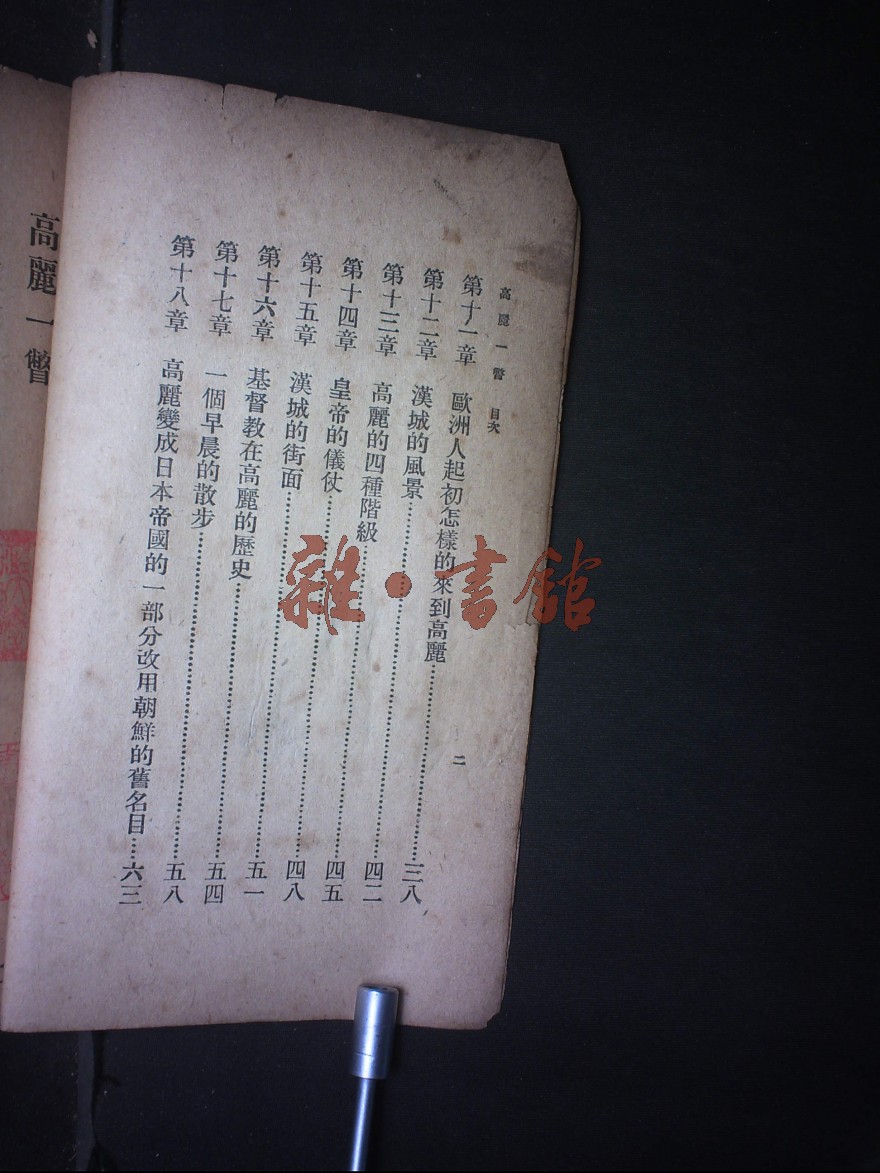 高麗一瞥 目次 二
第十一章 歐洲人起初怎樣的來到高麗……三八
第十二章 漢城的風景……四二
第十三章 高麗的四種階級……四五
第十四章 皇帝的儀仗……四八
第十五章 漢城的街面……五一
第十六章 基督教在高麗的歷史……五四
第十七章 一個早晨的散步……五八
第十八章 高麗變成日本帝國的一部分改用朝鮮的舊名目……六三
高麗一瞥
雜·書館